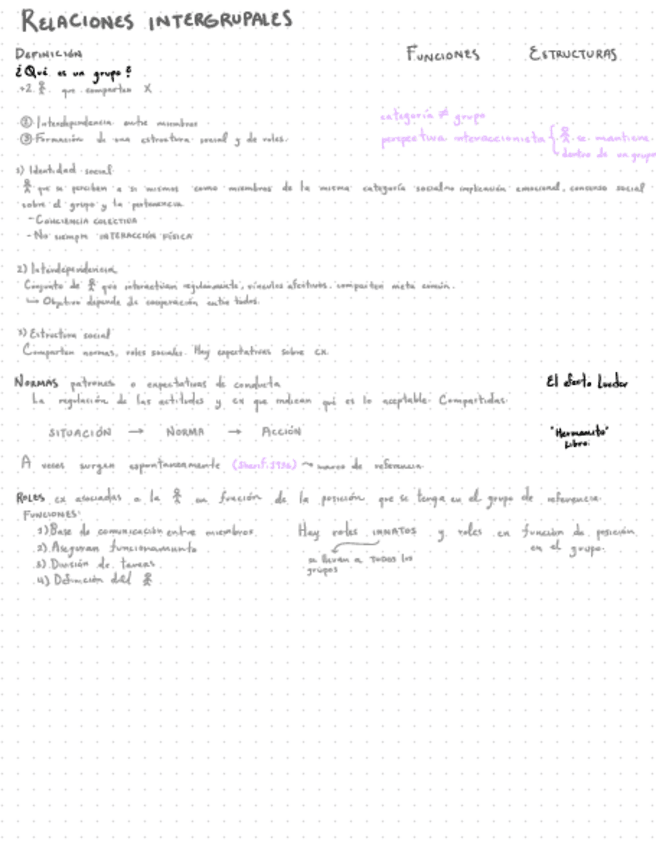 RELACIONES INTERGRUPALES
DEFINICIÓN
FUNCIONES
ESTRUCTURAS
¿Qué es un grupo?
+2 que comparten X
① Interdependencia entre miembros
② Formación de una estructura social y de roles.
categoría ≠ grupo
perspectiva interaccionista { se mantiene
dentro de un grupo
1) Identidad social
que se perciben a si mismos como miembros de la misma categoría social implicación emocional, consenso social
sobre el grupo y la pertenencia
- CONCIENCIA COLECTIVA
- No siempre INTERACCIÓN FÍSICA
2) Interdependencia
Conjunto de que interactúan regularmente, vínculos afectivos, comparten meta común.
↳ Objetivo depende de cooperación entre todos.
3) Estructura social
Comparten normas, roles sociales. Hay expectativas sobre cx
NORMAS patrones o expectativas de conducta
El efecto Lucifer
La regulación de las actitudes y cx que indican qué es lo aceptable. Compartidas.
SITUACIÓN → NORMA → ACCIÓN
"Hermanito"
Libro.
A veces surgen espontaneamente (Sherif, 1936) → marco de referencia.
ROLES cx asociadas a la en función de la posición que se tenga en el grupo de referencia.
FUNCIONES:
1) Base de comunicación entre miembros
2) Aseguran funcionamiento
3) División de tareas
4) Definición del
Hay roles INNATOS y roles en función de posición
en el grupo.
se llevan a TODOS los
grupos